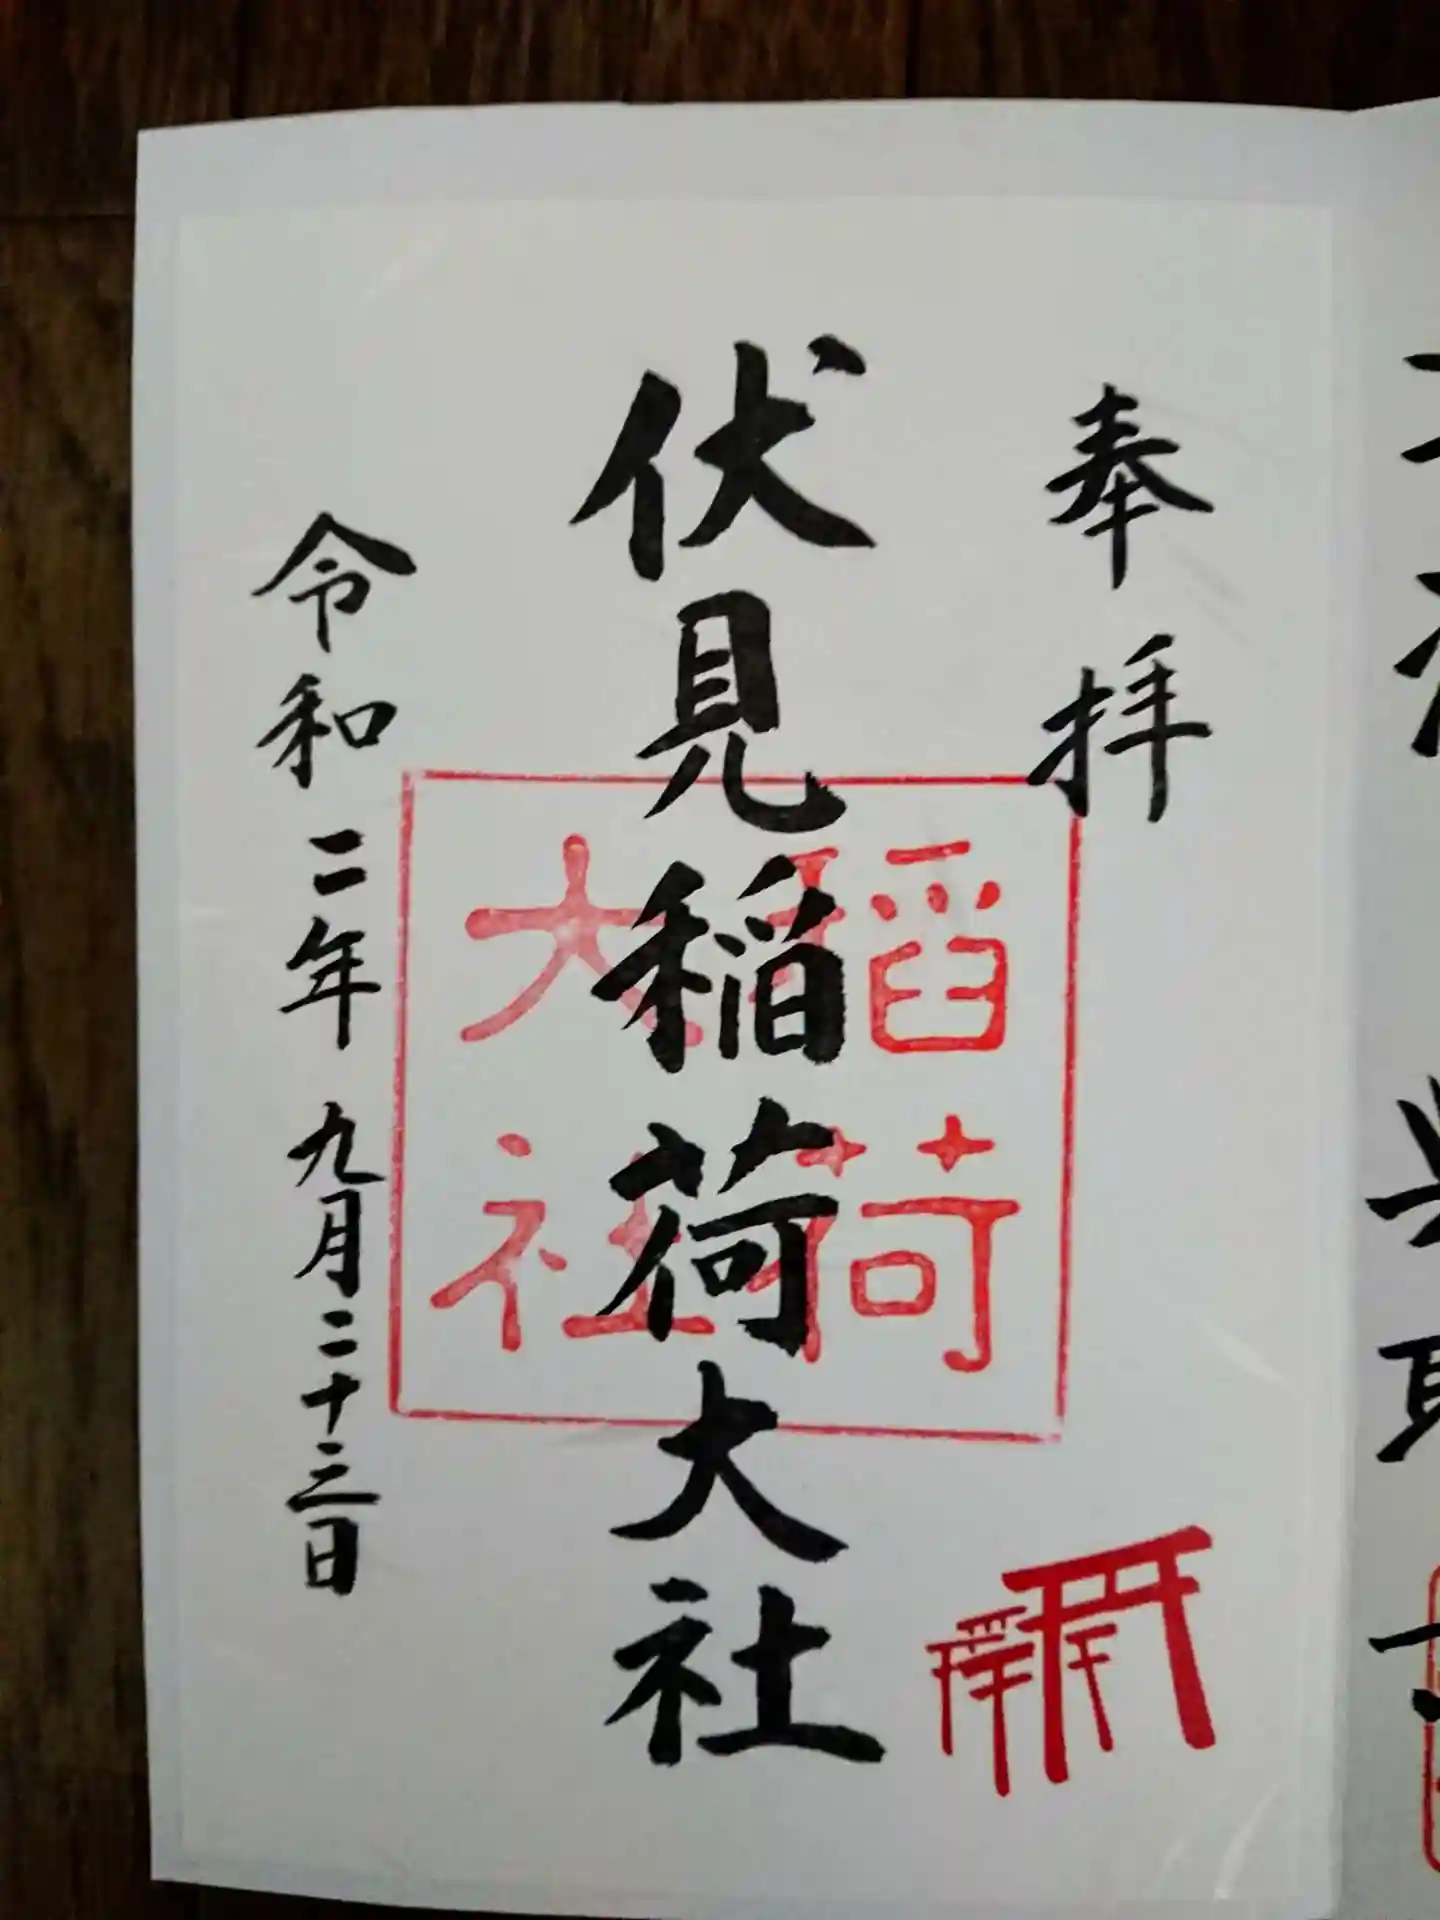 奉拝
伏見稲荷大社
稲荷
大社
令和二年 九月二十三日